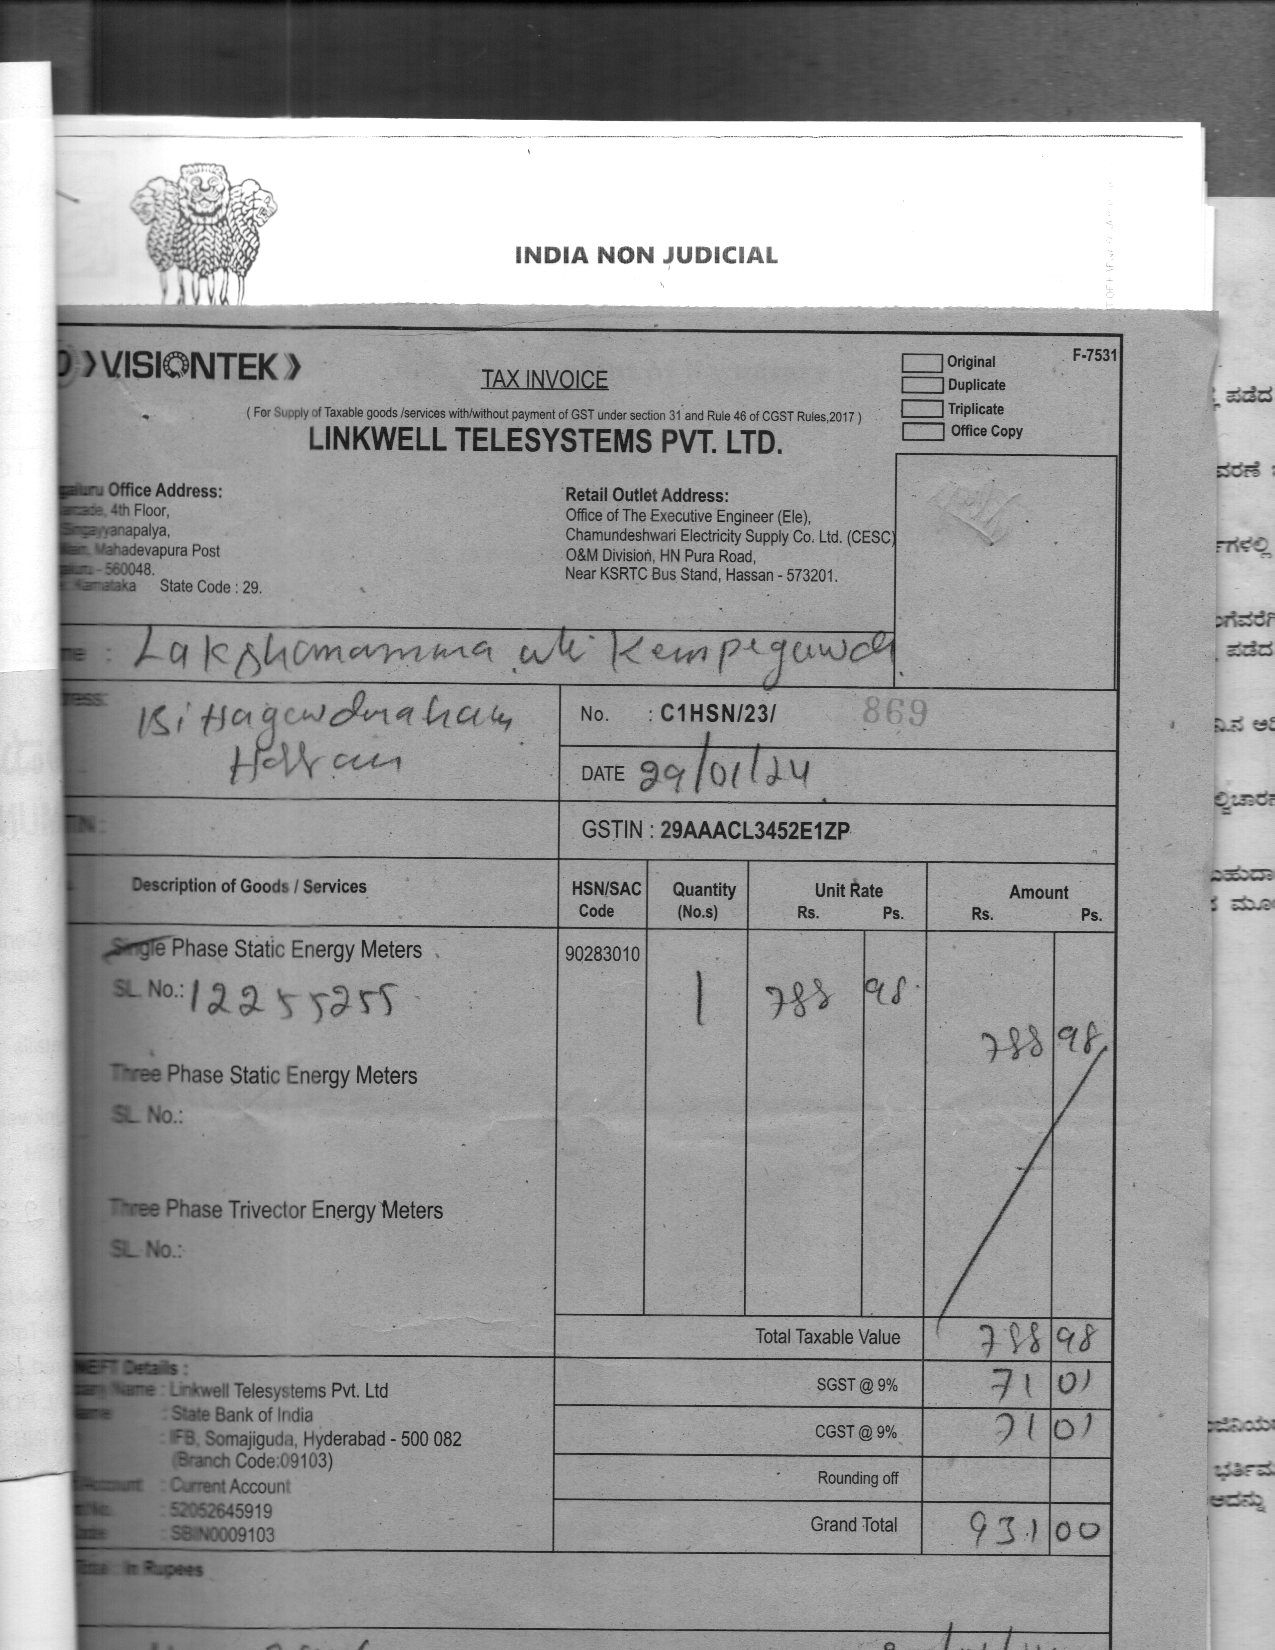 INDIA NON JUDICIAL
VISIONTEK
TAX INVOICE
Original
F-7531
Duplicate
Triplicate
Office Copy
( For Supply of Taxable goods /services with/without payment of GST under section 31 and Rule 46 of CGST Rules,2017 )
LINKWELL TELESYSTEMS PVT. LTD.
Office Address:
4th Floor,
Mahadevapura Post
- 560048.
Karnataka State Code : 29.
Retail Outlet Address:
Office of The Executive Engineer (Ele),
Chamundeshwari Electricity Supply Co. Ltd. (CESC)
O&M Division, HN Pura Road,
Near KSRTC Bus Stand, Hassan - 573201.
: Lakshamamma w/o Kempegowda
Hassan
No. : C1HSN/23/ 869
DATE 29/01/24
GSTIN : 29AAACL3452E1ZP
Description of Goods / Services
HSN/SAC Code
Quantity (No.s)
Unit Rate
Rs. Ps.
Amount
Rs. Ps.
Single Phase Static Energy Meters 90283010
SL. No.: 12255255 1 788 98
788 98
Three Phase Static Energy Meters
SL. No.:
Three Phase Trivector Energy Meters
SL. No.:
Total Taxable Value 788 98
SGST @ 9% 71 01
CGST @ 9% 71 01
Rounding off
Grand Total 931 00
NEFT Details :
Name : Linkwell Telesystems Pvt. Ltd
: State Bank of India
: IFB, Somajiguda, Hyderabad - 500 082
(Branch Code:09103)
: Current Account
: 52052645919
: SBIN0009103
in Rupees
ಪಡೆದ
ಪಡೆದ